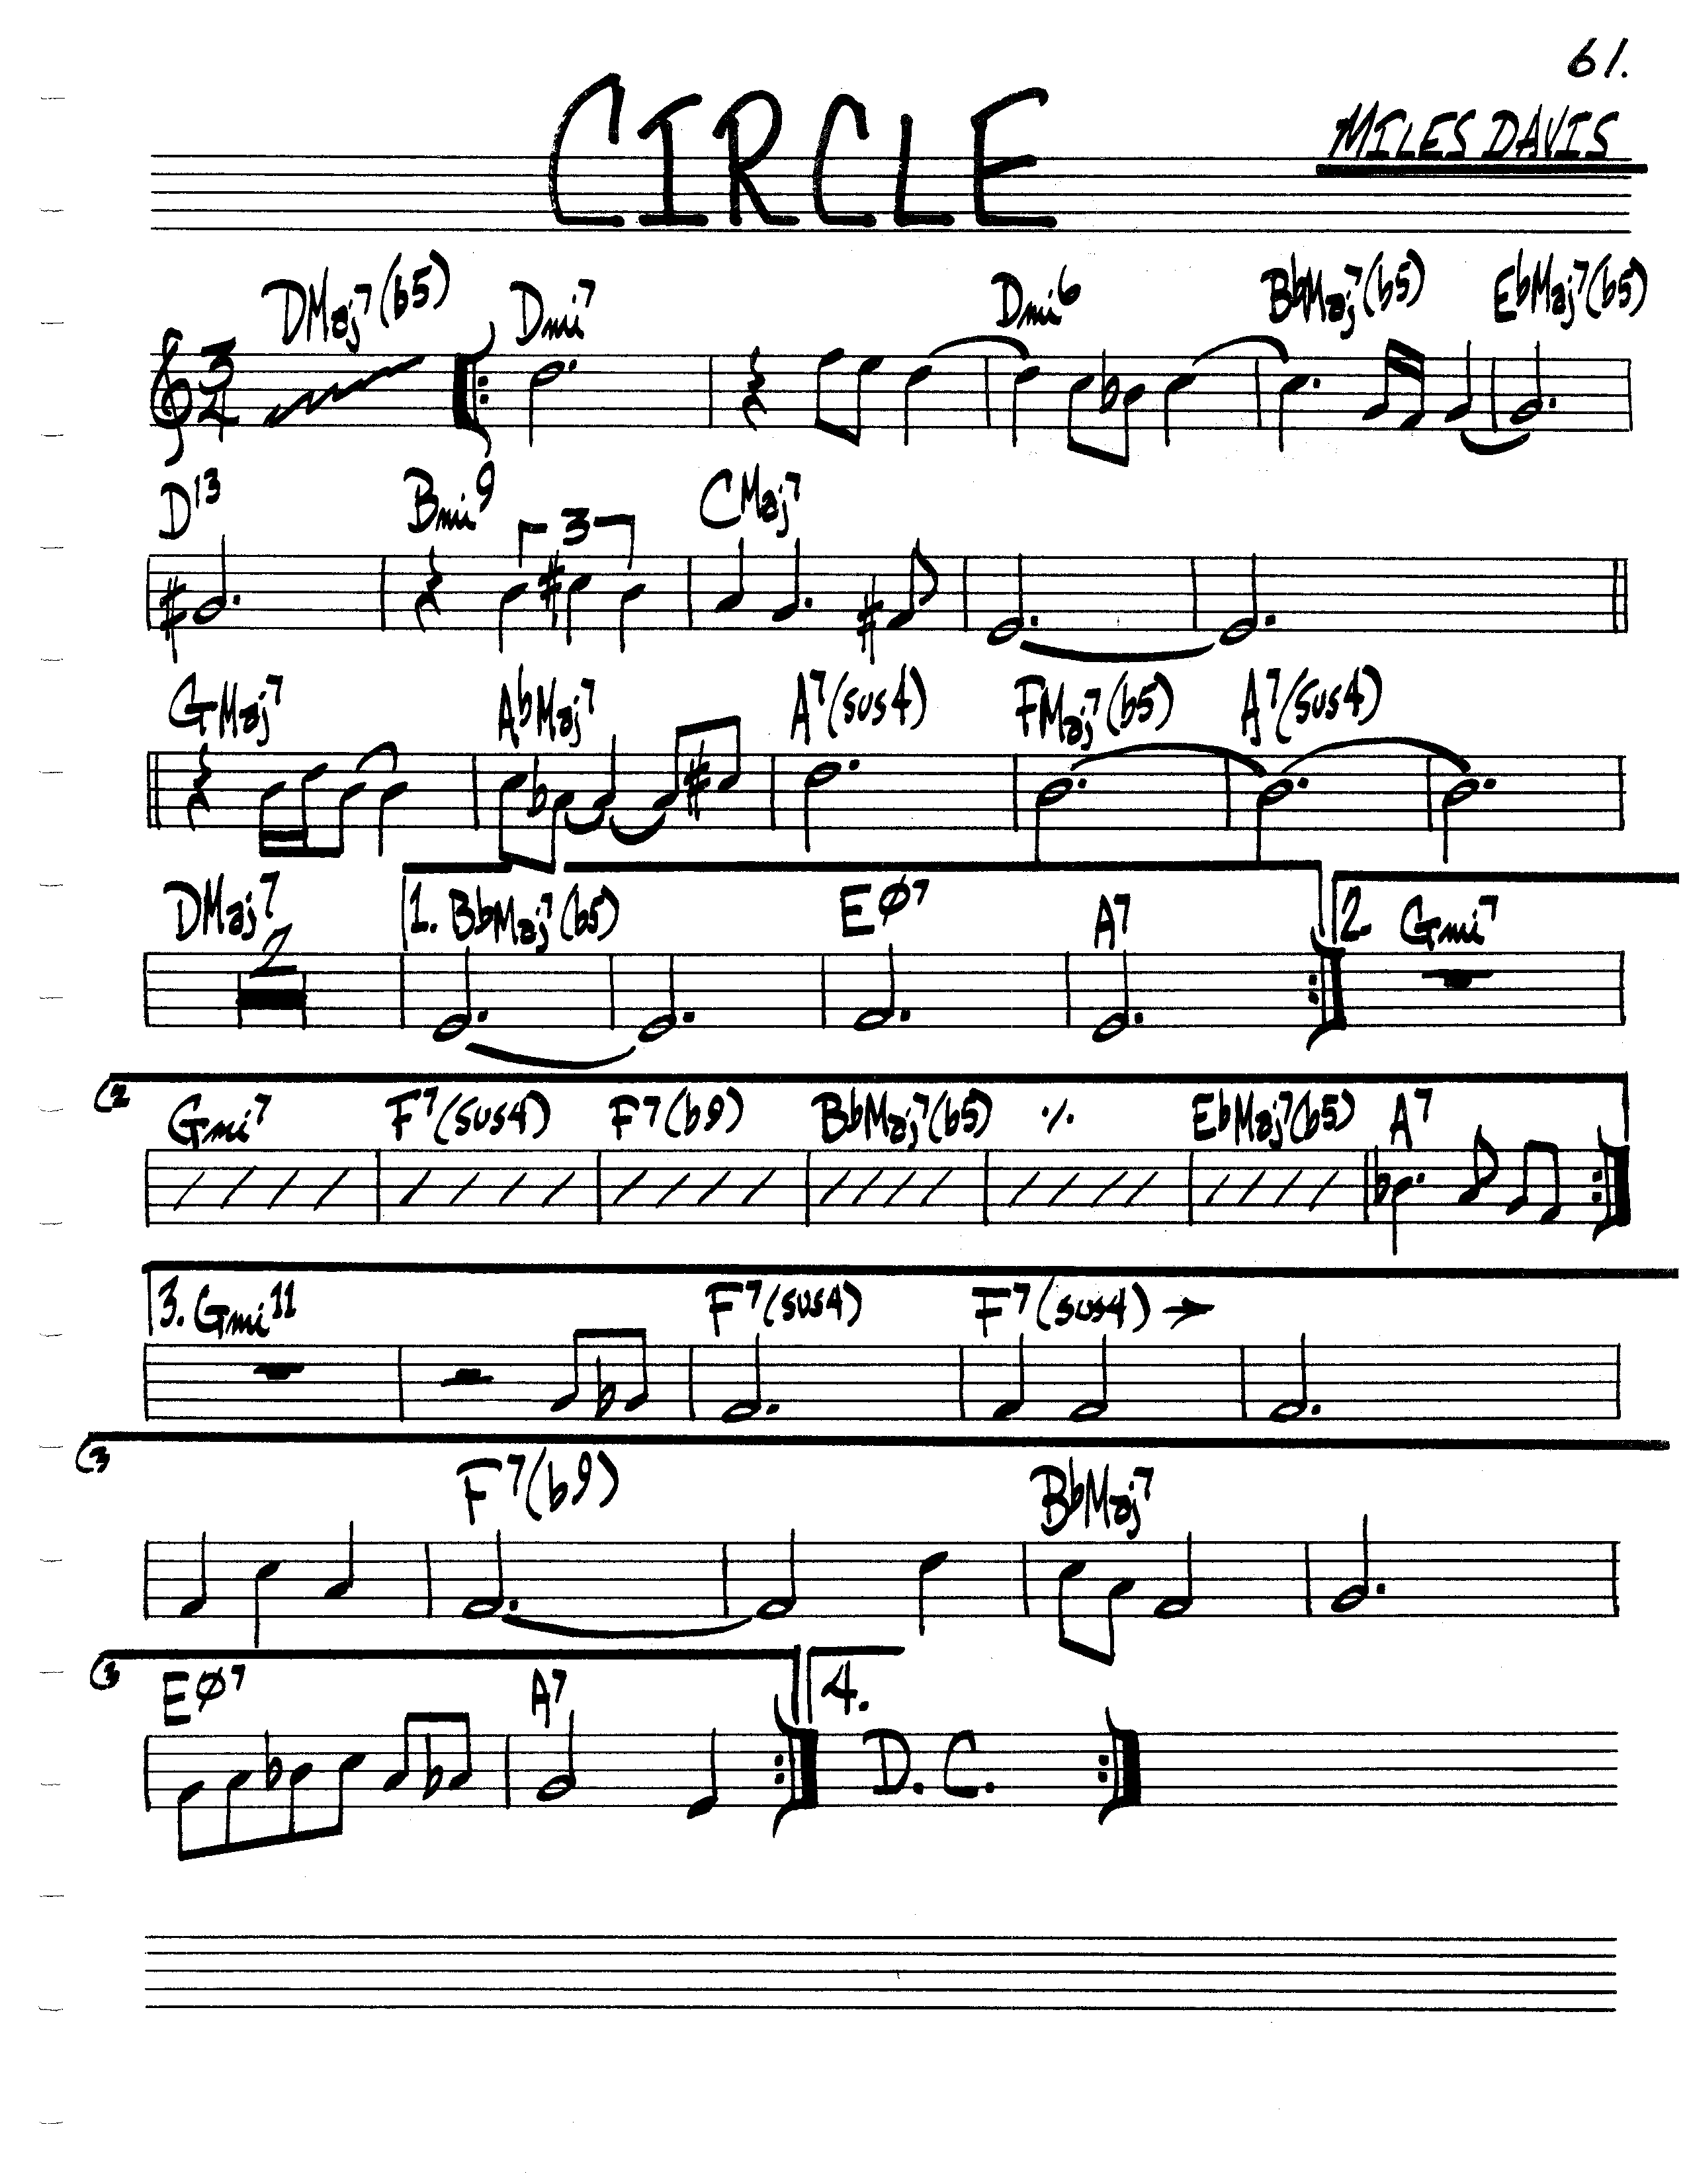 61.
CIRCLE
MILES DAVIS
DMaj7(b5) Dmi7 Dmi6 BbMaj7(b5) EbMaj7(b5)
3
2
D13 Bmi9 3 CMaj7
GMaj7 AbMaj7 A7(sus4) FMaj7(b5) A7(sus4)
DMaj7 1. BbMaj7(b5) EØ7 A7 2. Gmi7
2
(2 Gmi7 F7(sus4) F7(b9) BbMaj7(b5) ٪ EbMaj7(b5) A7
3. Gmi11 F7(sus4) F7(sus4) →
(3 F7(b9) BbMaj7
(3 EØ7 A7 4.
D.C.